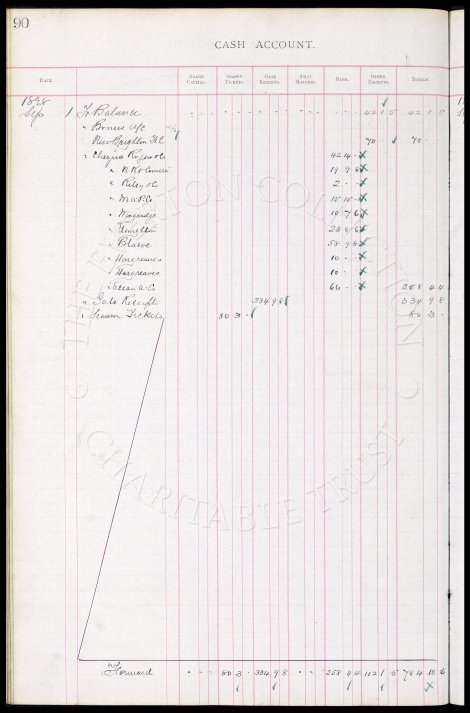 90
CASH ACCOUNT.
DATE. SHARE CAPITAL. SEASON TICKETS. GATE RECEIPTS. AWAY MATCHES. BANK. OTHER RECEIPTS. TOTALS.
1898
Sep 1 To Balance 42 1 6 42 1 6
" Bonus A/c
New Brighton F.C. 70 - - 70 - -
" Cheques Rogers & Co 42 14 -
" 19 9 8
" Riley & Co 2 - -
" M & P. Co 15 15
" 10 7 6
" 8 6
" 58 9 8
" Hargreaves 10 - -
" Hargreaves 10 - -
" Ocean A. Co 66 - - 258 4 4
" Gate Receipts 334 9 8 334 9 8
" Season Tickets 80 3 - 80 3 -
Forward - - - 80 3 - 334 9 8 - - - 258 4 4 112 1 6 784 18 6
THE BOLTON COLLECTION
CHARITABLE TRUST